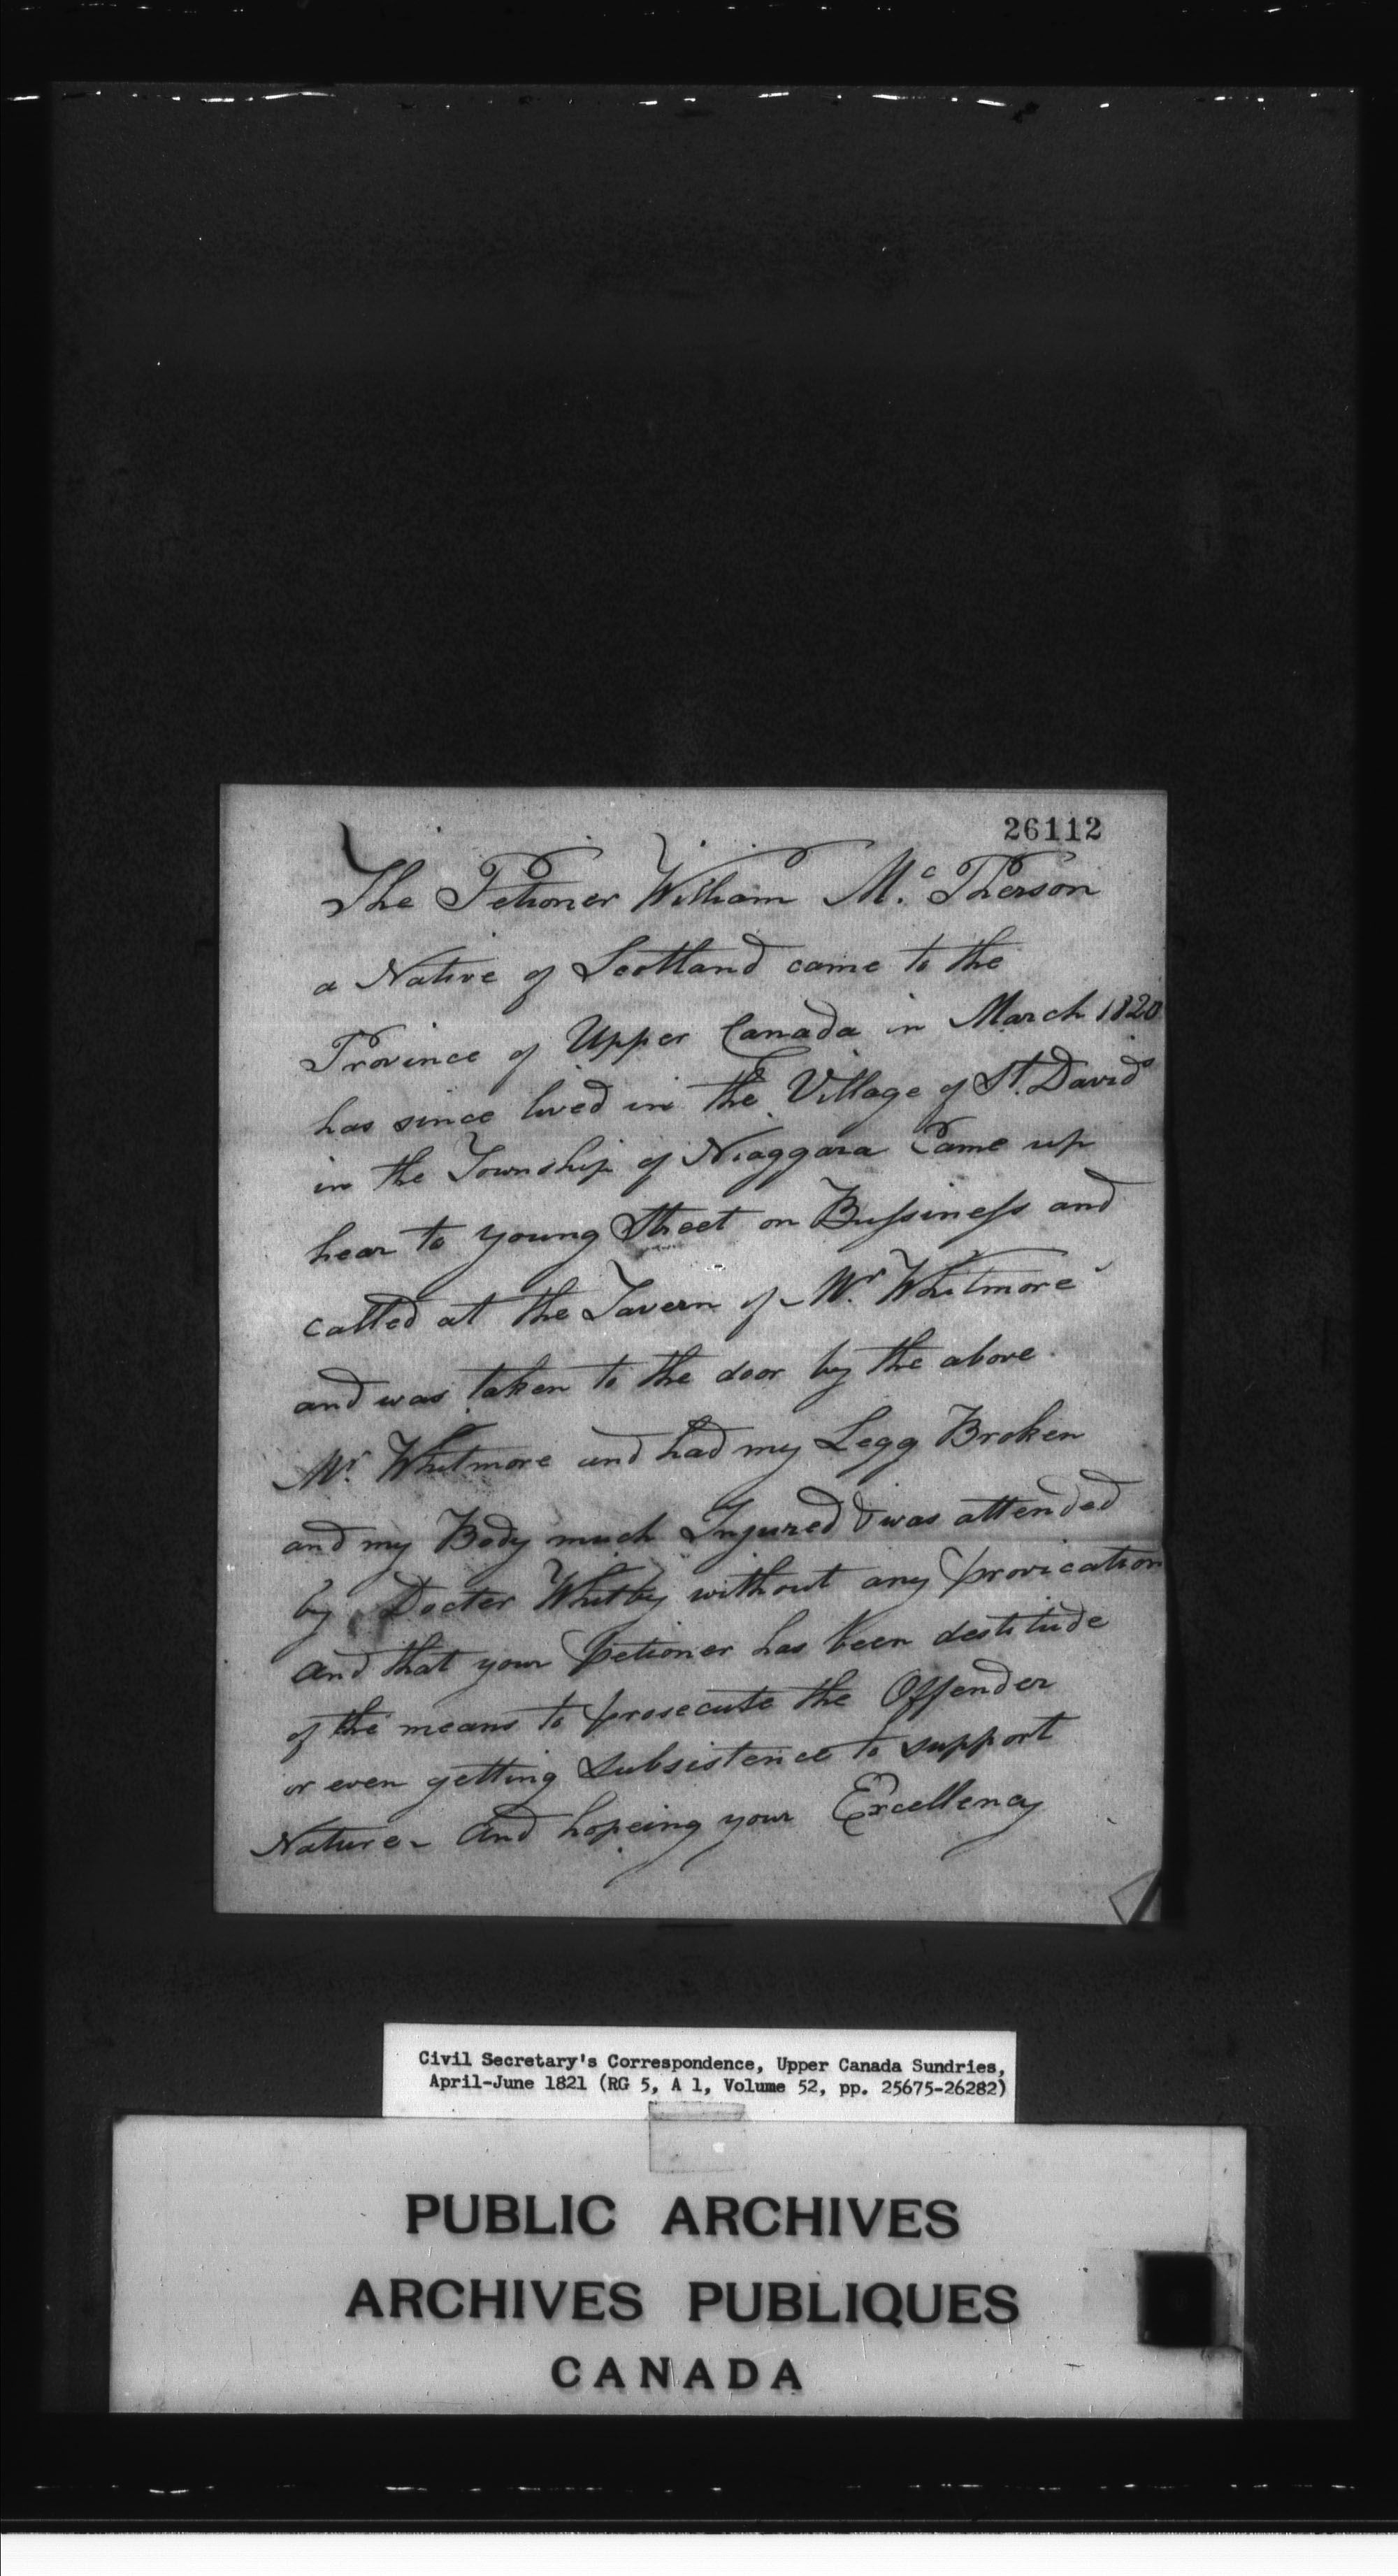 26112
The Petioner William Mc. Pherson
a Native of Scotland came to the
Province of Upper Canada in March 1820
has since lived in the Village of St. Davids
in the Township of Niaggara Came up
hear to Young Street on Bussiness and
called at the Tavern of Mr. Whitmore
and was taken to the door by the above
Mr. Whitmore and had my Legg Broken
and my Body much Injured & was attended
by Docter Whitby without any provication
and that your petioner has been destitude
of the means to prosecute the Offender
or even getting Subsistence to support
Nature - And hopeing your Excellency
Civil Secretary's Correspondence, Upper Canada Sundries,
April-June 1821 (RG 5, A 1, Volume 52, pp. 25675-26282)
PUBLIC ARCHIVES
ARCHIVES PUBLIQUES
CANADA